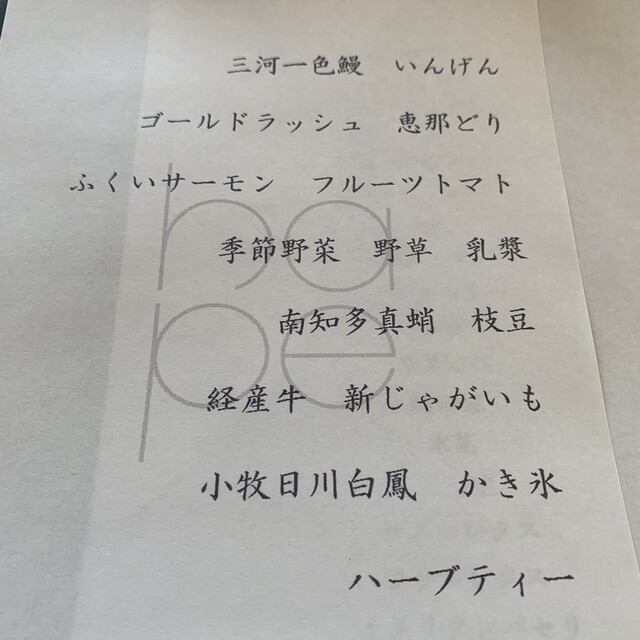 三河一色鰻　いんげん
ゴールドラッシュ　恵那どり
ふくいサーモン　フルーツトマト
季節野菜　野草　乳漿
南知多真蛸　枝豆
経産牛　新じゃがいも
小牧日川白鳳　かき氷
ハーブティー
na
pe